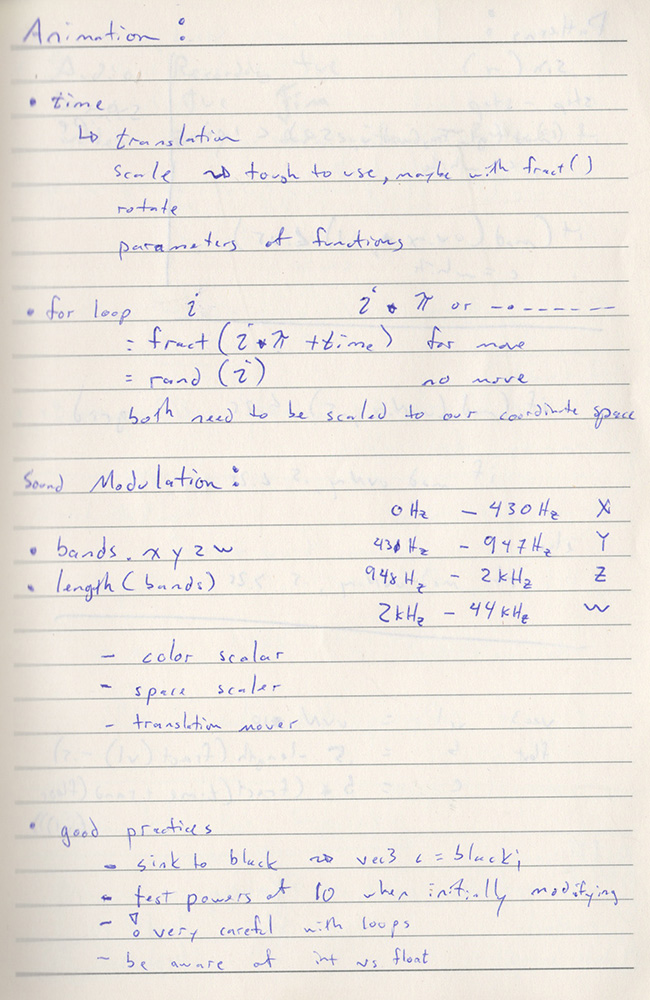 Animation :
• time
↳ translation
scale ⇝ tough to use, maybe with fract()
rotate
parameters of functions
• for loop i i * π or -.------
= fract(i*π +time) for move
= rand (i) no move
both need to be scaled to our coordinate space
Sound Modulation :
0Hz - 430Hz X
• bands. x y z w 430Hz - 947Hz Y
• length(bands) 948Hz - 2kHz Z
2kHz - 44kHz w
- color scalar
- space scaler
- translation mover
• good practices
- sink to black ⇝ vec3 c = black;
- test powers of 10 when initially modifying
- ! very careful with loops
- be aware of int vs float